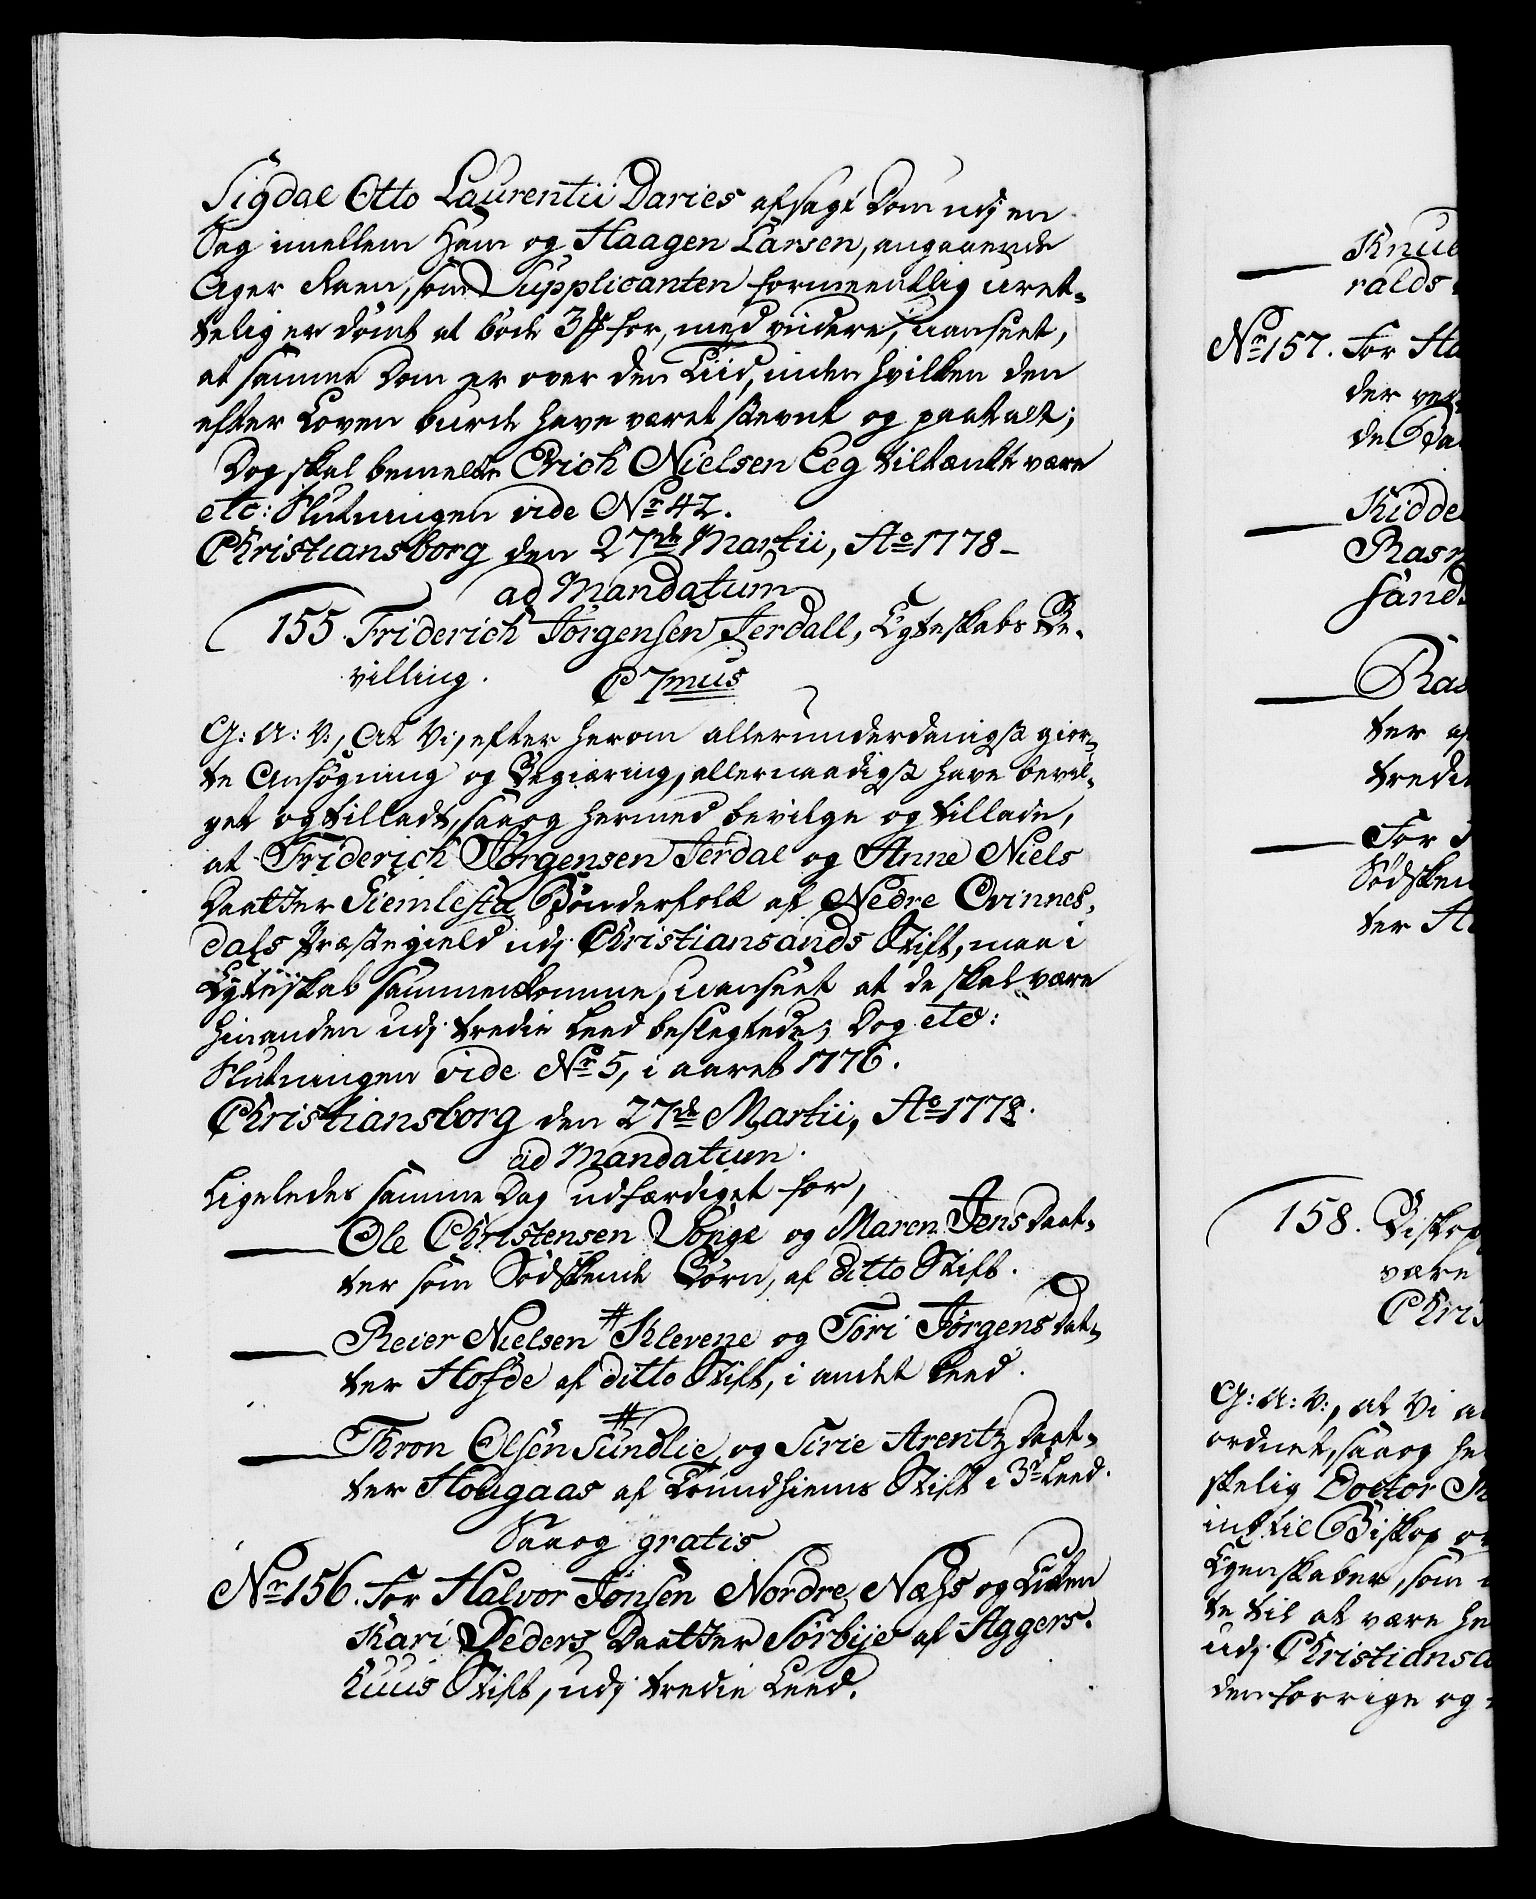 Sigdal Otto Laurentii Daries afsagt Dom udj en
Sag imellem ham og Haagen Larsen, angaaende
Ager Reen, som Supplicanten formeentlig uret-
telig er dömt at böde 3 for, med videre, uanseet,
at samme Dom er over den Tiid, inden hvilken den
efter Loven burde have været stevnt og paatalt;
Dog skal bemelte Erich Nielsen Eeg tiltænkt være
etc: Slutningen vide Nr. 42.
Christiansborg den 27de Martii, Ao 1778 -
ad Mandatum
155. Friderich Jörgensen Jerdall, Egteskabs Be-
villing. C 7mus
G: A: V:, At Vi, efter herom allerunderdanigst gior-
te Ansögning og Begiæring, allernaadigst have bevil-
get og tilladt, saaog hermed bevilge og tillade,
at Friderich Jörgensen Jerdal og Anne Niels
Daatter Siemlestæ Bönderfolk af Nedre Qvinnes-
dals Præstegield udj Christiansands Stift, maa i
Egteskab sammenkomme, uanseet at de skal være
hinanden udj tredie Leed beslegtede; Dog etc:
Slutningen vide Nr. 5, i aaret 1776.
Christiansborg den 27de Martii, Ao 1778.
ad Mandatum.
Ligeledes samme Dag udfærdiget for,
Ole Christensen Vonge og Maren Jens Daat-
ter som Södskende Börn, af ditto Stift.
#
Reier Nielsen Klevene og Töri Jörgens Dat-
ter Hofde af ditto Stift, i andet Leed.
#
Thron Olsen Sundlie og Sirie Arentz Daat-
ter Hougaas af Trundhiems Stift i 3e Leed.
Saaog gratis
Nr. 156. For Halvor Jonsen Nordre Næss og Enken
Kari Peders Daatter Sörbÿe af Aggers-
huus Stift, udj tredie Leed.
ralds
Nr. 157. For Ha
ter af
158. Biskop
være
Chris
G: A: V:, at Vi
ordnet, saaog he
skelig Doctor
ind til Biskop
Egenskaber, som
te til at være he
udj Christiansa
den forrige og